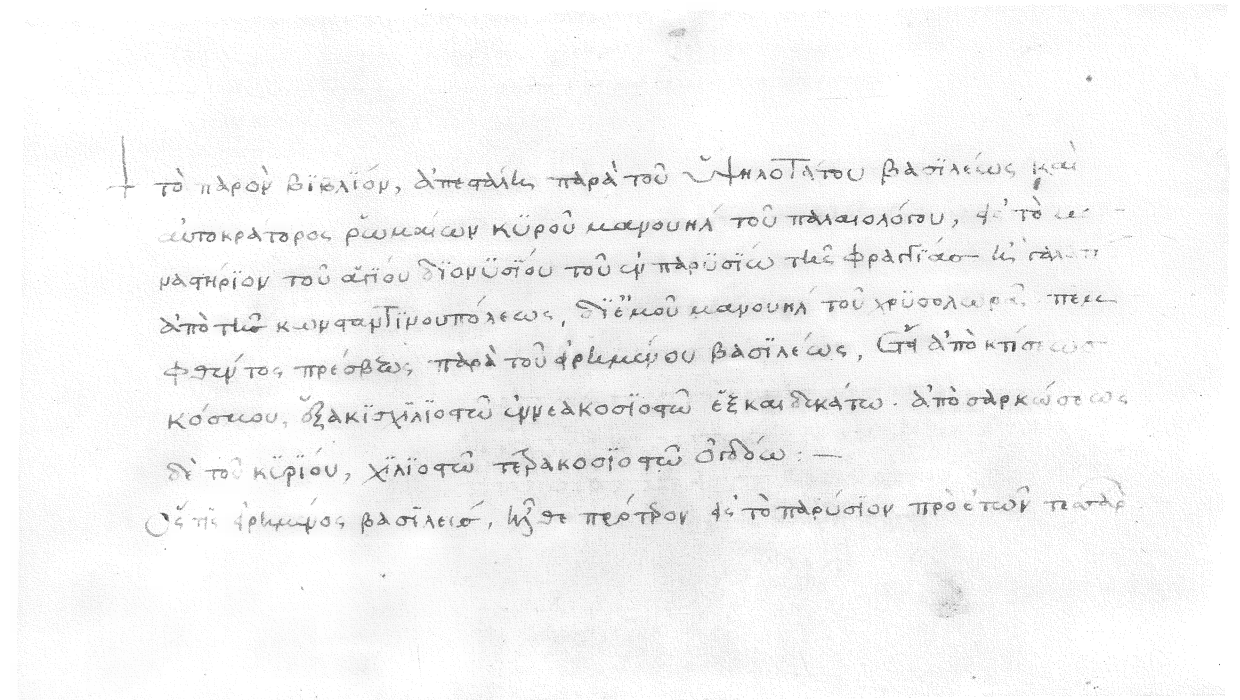 † τὸ παρὸν βϊβλϊόν, ἀπεστάλη παρὰ τοῦ ὑψηλοτάτου βασϊλέως καὶ
αὐτοκράτορος ῥωμαίων κϋροῦ μανουὴλ τοῦ παλαιολόγου, εἰς τὸ μο
ναστήρϊον τοῦ ἁγϊου δϊονϋσϊου τοῦ ἐν παρϋσϊω τῆς φραγγϊας
ἀπὸ τῆς κωνσταντϊνουπόλεως, δϊ ἐμοῦ μανουὴλ τοῦ χρϋσολωρᾶ πεμ
φθέντος πρέσβεως παρὰ τοῦ εἰρημένου βασϊλέως, ἔτει ἀπὸ κτίσεως
κόσμου, ἑξακϊσχϊλϊοστῶ ἐννεακοσϊοστῶ ἑξκαιδεκάτω. ἀπὸ σαρκώσεως
δὲ τοῦ κϋρϊου, χϊλϊοστῶ τετρακοσϊοστῶ ὀγδόω : —
ὅστις εἰρημένος βασϊλεὺς, ἦλθε πρότερον εἰς τὸ παρύσϊον πρὸ ἐτῶν τεσσάρ